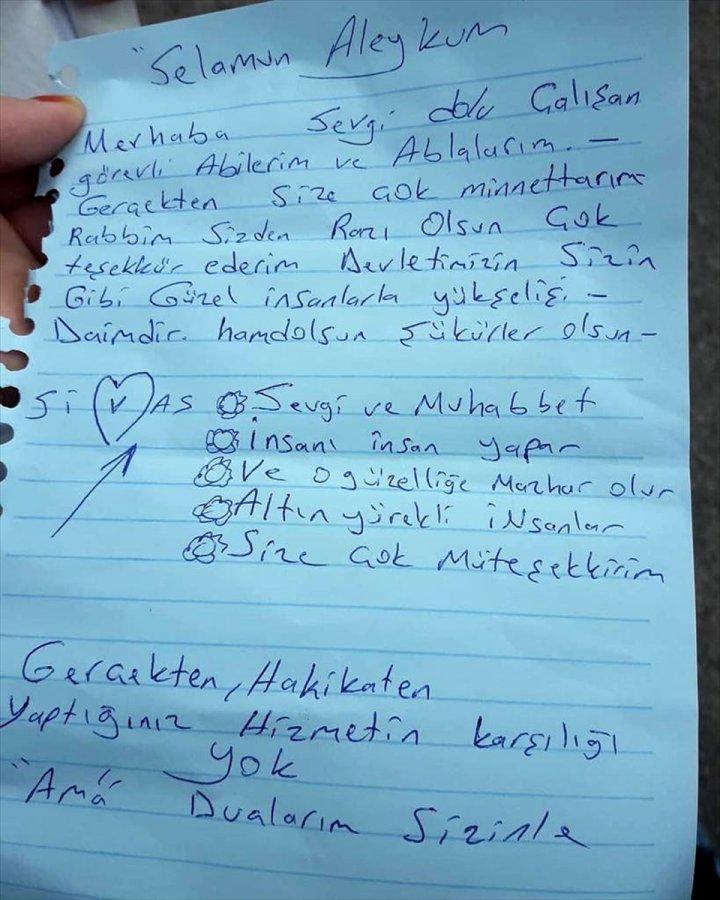 "Selamun Aleykum
Merhaba Sevgi dolu Çalışan
görevli Abilerim ve Ablalarım. —
Gerçekten Size çok minnettarım
Rabbim Sizden Razı Olsun Çok
teşekkür ederim Devletimizin Sizin
Gibi Güzel insanlarla yükselişi. —
Daimdir. hamdolsun Şükürler olsun —
Si V AS Sevgi ve Muhabbet
İnsanı insan yapar
Ve o güzelliğe Mazhar olur
Altın yürekli iNsanlar
Size Çok Müteşekkirim
Gerçekten, Hakikaten
Yaptığınız Hizmetin karşılığı
yok
"Ama" Dualarım Sizinle